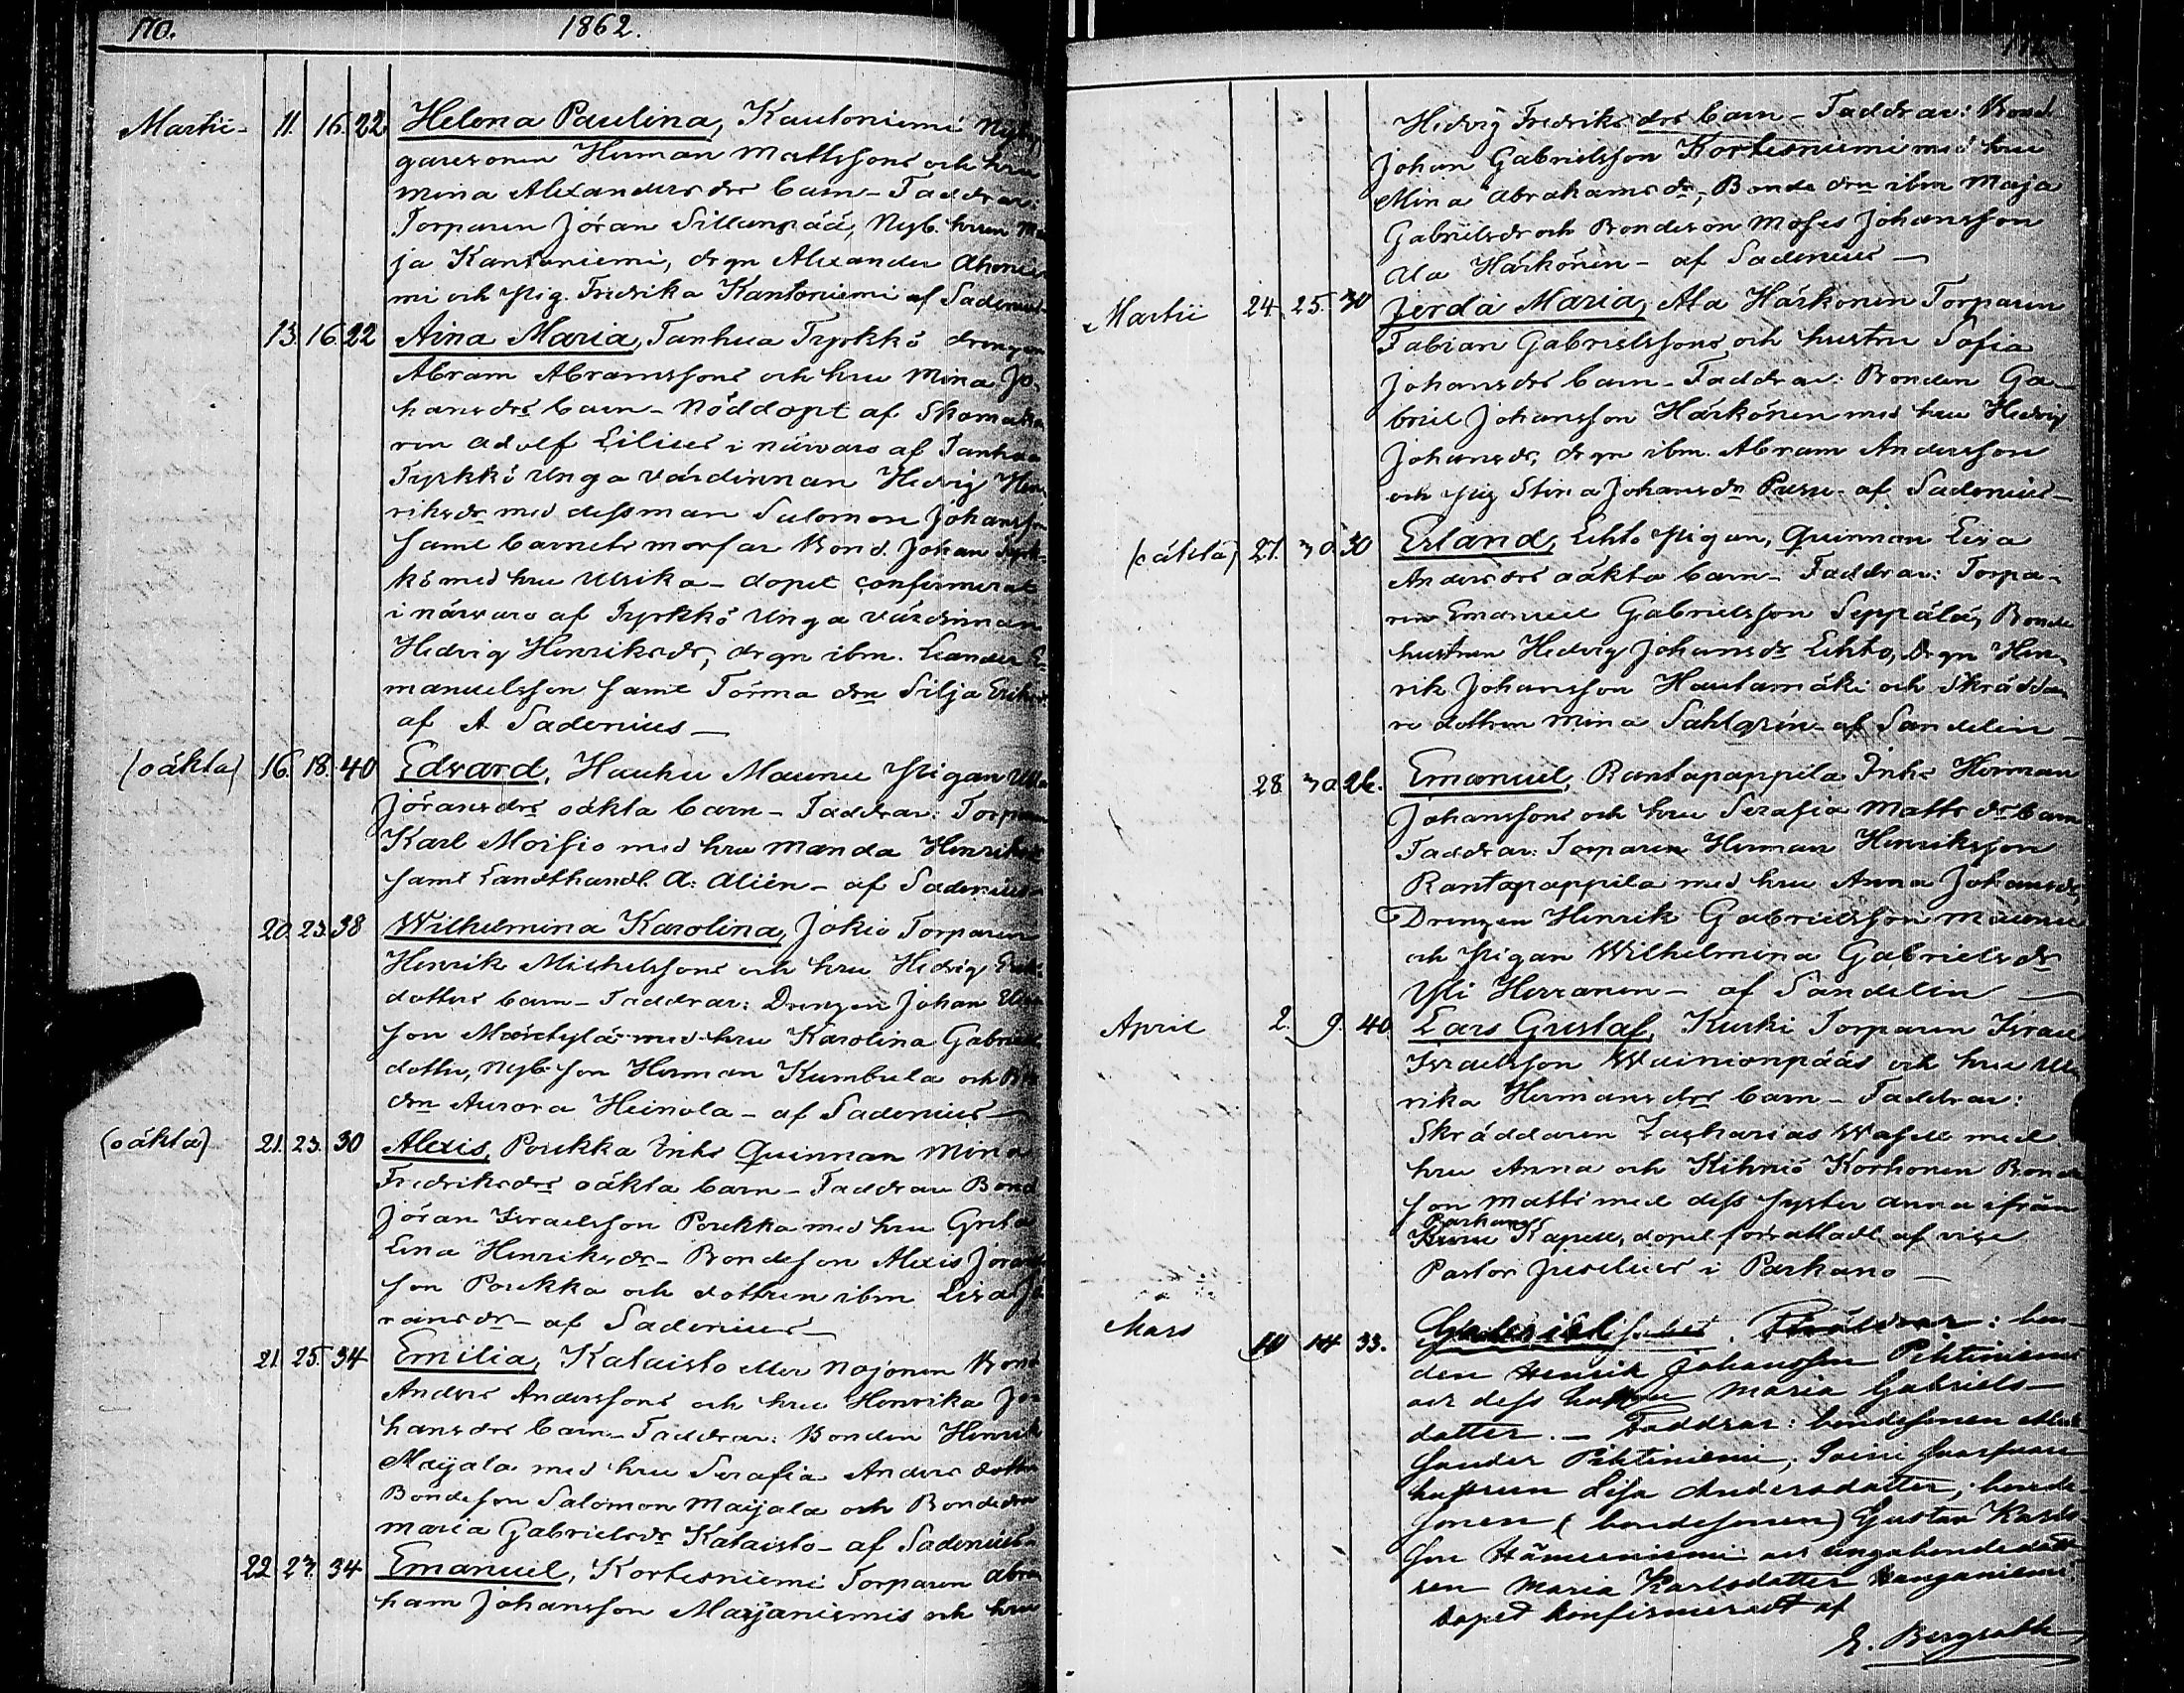 170.
1862.
Martii - 11. 16. 22 Helena Paulina, Kautoniemi Nyb
garesonen Herman Mattssons och hru
Mina Alexanders drs barn - Faddrar:
Torparen Jöran Sillanpää, Nyb. hrun Ma
ja Kantoniemi, drgn Alexander Ahonie
mi och pig. Fredrika Kantoniemi af Sadenius
13. 16. 22 Aina Maria, Tanhua Tyrkkö drengen
Abram Abramssons och hru Mina Jo
hansdrs barn - Nöddöpt af Skomaka
ren Adolf Lilius i närvaro af Tanhua
Tyrkkö Unga värdinnan Hedvig Hen
riksdr med dess man Salomon Johansson
samt barnets morfar Bond. Johan Tyrk
kö med hru Ulrika - dopet confirmerat
i närvaro af Tyrkkö Unga värdinnan
Hedvig Henriksdr, drgn ibm. Leander E
manuelsson samt Törmä drn Silja Eriks
af A Sadenius -
(oäkta) 16. 18. 40 Edvard, Hauhu Maunu Pigan Ulla
Jöransdrs oäkta barn - Faddrar: Torparen
Karl Moisio med hru Manda Henriks
samt Landthandl. A. Alién - af Sadenius
20. 23. 38 Wilhelmina Karolina, Jokio Torparen
Henrik Michelssons och hru Hedvig Eriks
dotters barn - Faddrar: Drengen Johan
son Märkylä med hru Karolina Gabriels
dotter, Nyb. son Herman Kumbula och
drn Aurora Heinola - af Sadenius -
(oäkta) 21. 23. 30 Alexis, Poukka Inhs Quinnan Mina
Fredriksdrs oäkta barn - Faddrar Bond
Jöran Israelsson Poukka med hru Greta
Lena Henriksdr - Bondeson Alexis Jörans
son Poukka och dottren ibm Lisa Jö
ransdr - af Sadenius -
21. 25. 34 Emilia, Kataisto eller Nojonen Bond
Anders Anderssons och hru Henrika Jo
hansdrs barn - Faddrar: Bonden Henrik
Maijala med hru Serafia Anders dotter
Bondeson Salomon Maijala och Bondedrn
Maria Gabrielsdr Kataisto - af Sadenius -
22 27. 34 Emanuel, Kortesniemi Torparen Abra
ham Johansson Marjaniemis och hru
Hedvig Fredriks drs barn - Faddrar: Bond
Johan Gabrielsson Kortesniemi med hru
Mina Abrahamsdr, Bonde drn ibm Maja
Gabrielsdr och Bondeson Moses Johansson
Ala Härkönen - af Sadenius -
Martii 24. 25. 30 Jerda Maria, Ala Härkönen Torparen
Fabian Gabrielssons och hustru Sofia
Johansdrs barn - Faddrar: Bonden Ga-
briel Johansson Härkönen med hru Hedvig
Johansdr, drgn ibm. Abram Andersson
och pig Stina Johansdr Pusu - af Sadenius -
(oäkta) 27. 30. 30 Erland, Lehto pigan, Quinnan Lisa
Andersdrs oäkta barn - Faddrar: Torpa-
ren Emanuel Gabrielsson Seppälä, Bonde
hustrun Hedvig Johansdr Lehto, Drgn Hen-
rik Johansson Hautamäki och Skrädda
re dottren Mina Sahlgrén - af Sandelin -
28. 30. 26. Emanuel, Rantapappila Inhs Herman
Johanssons och hru Serafia Matts drs barn
Faddrar: Torparen Herman Henriksson
Rantapappila med hru Anna Johansdr,
Drengen Henrik Gabrielsson Maunu
och Pigan Wilhelmina Gabrielsdr
Yli Herranen - af Sandelin -
April 2. 9. 40. Lars Gustaf, Kurki Torparen Israel
Israelsson Wainionpääs och hru Ul
rika Hermansdrs barn - Faddrar:
Skräddaren Zacharias Wasell med
hru Anna och Kihniö Korhonen Bonde
son Matts med dess syster Anna ifrån
Parkano
Kapell, dopet förrättadt af vice
Pastor Juselius i Parkano -
Mars 10 14 33. Föräldrar: bon-
den Henrik Johansson Pihtiniemi
och dess hustru Maria Gabriels-
dotter. - Faddrar: bondesonen Alek
sander Pihtiniemi,
hustrun Lisa Andersdotter, bonde-
sonen (bondesonen) Gustav Karls
son Hämeeniemi och unga bondedott
ren Maria Karlsdotter Kanganiemi
Dopet konfirmeradt af
E. Bergroth